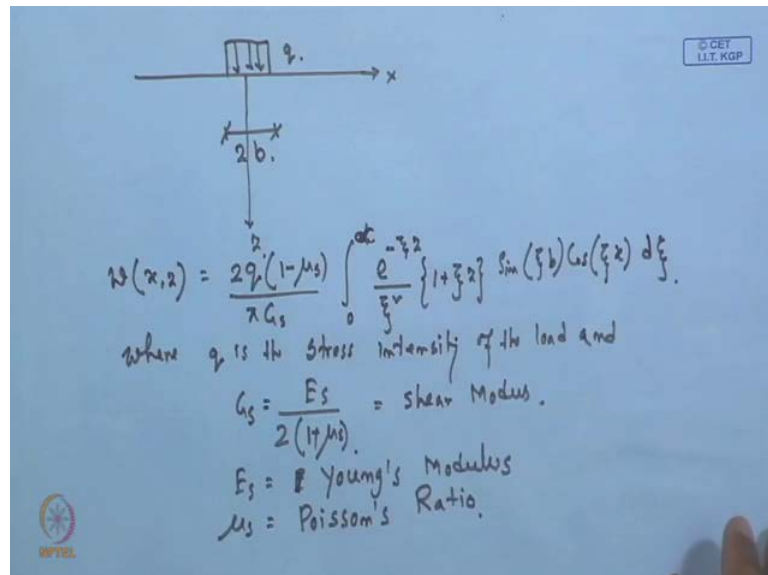 © CET
I.I.T. KGP
q.
x
2b.
z
w(x,z) = 2q(1-μs)/πGs ∫₀^∞ e^-ξz/ξ² {1+ξz} Sin(ξb) Cos(ξx) dξ.
where q is the stress intensity of the load and
Gs = Es/2(1+μs) = shear Modus.
Es = Young's Modulus
μs = Poisson's Ratio.
NPTEL